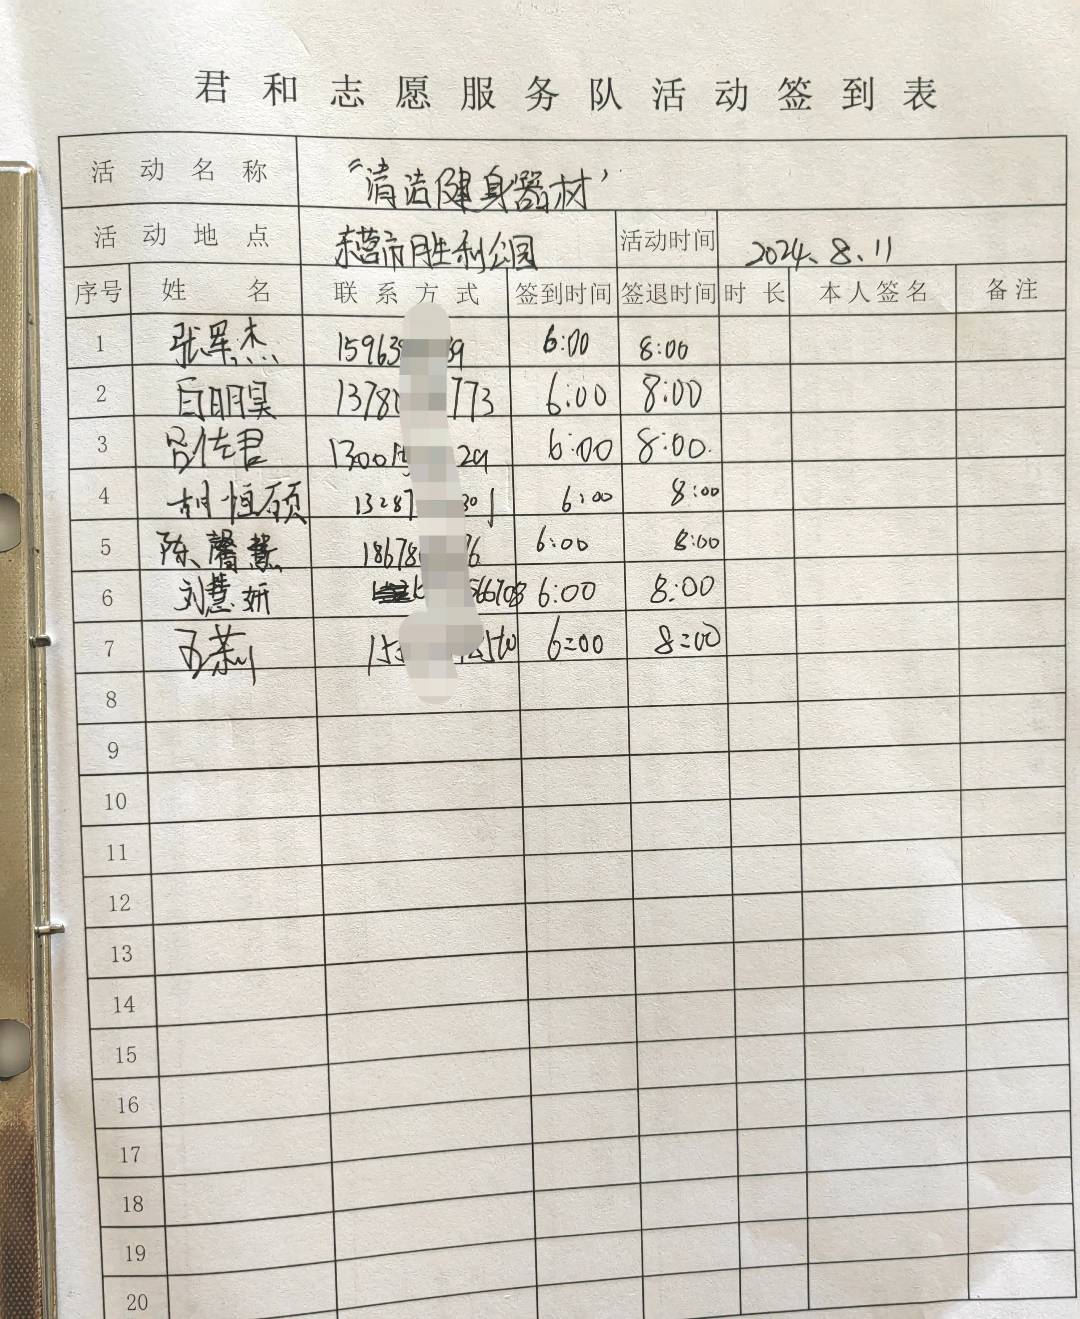 君和志愿服务队活动签到表
活动名称 “清洁健身器材’
活动地点 东营市胜利公园 活动时间 2024.8.11
序号 姓名 联系方式 签到时间 签退时间 时长 本人签名 备注
1 张军杰 15963 39 6:00 8:00
2 白明昊 1378 773 6:00 8:00
3 吕佐君 1300 29 6:00 8:00.
4 胡恒硕 13287 30 6:00 8:00
5 陈馨慧 18678 76 6:00 8:00
6 刘慧妍 566708 6:00 8:00
7 153 6:00 8:00
8
9
10
11
12
13
14
15
16
17
18
19
20